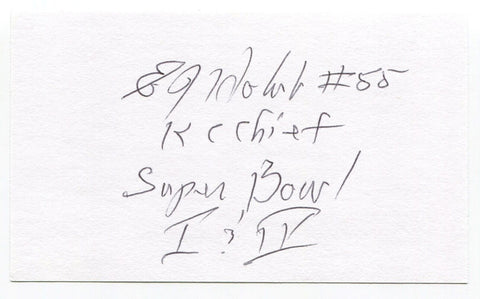 EJ Holub #55
KC Chief
Super Bowl
I & IV